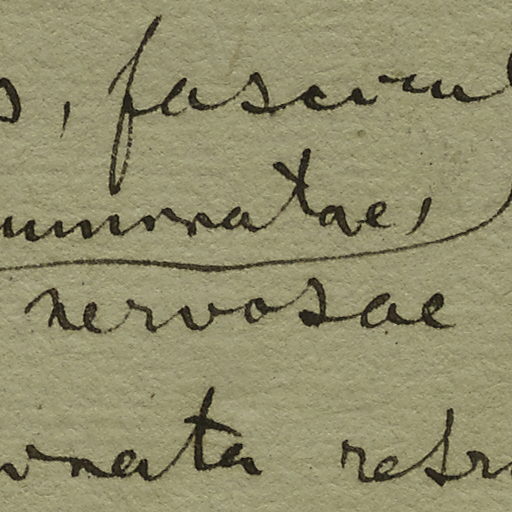 s, fascicul
acuminatae,
nervosae
nata retr